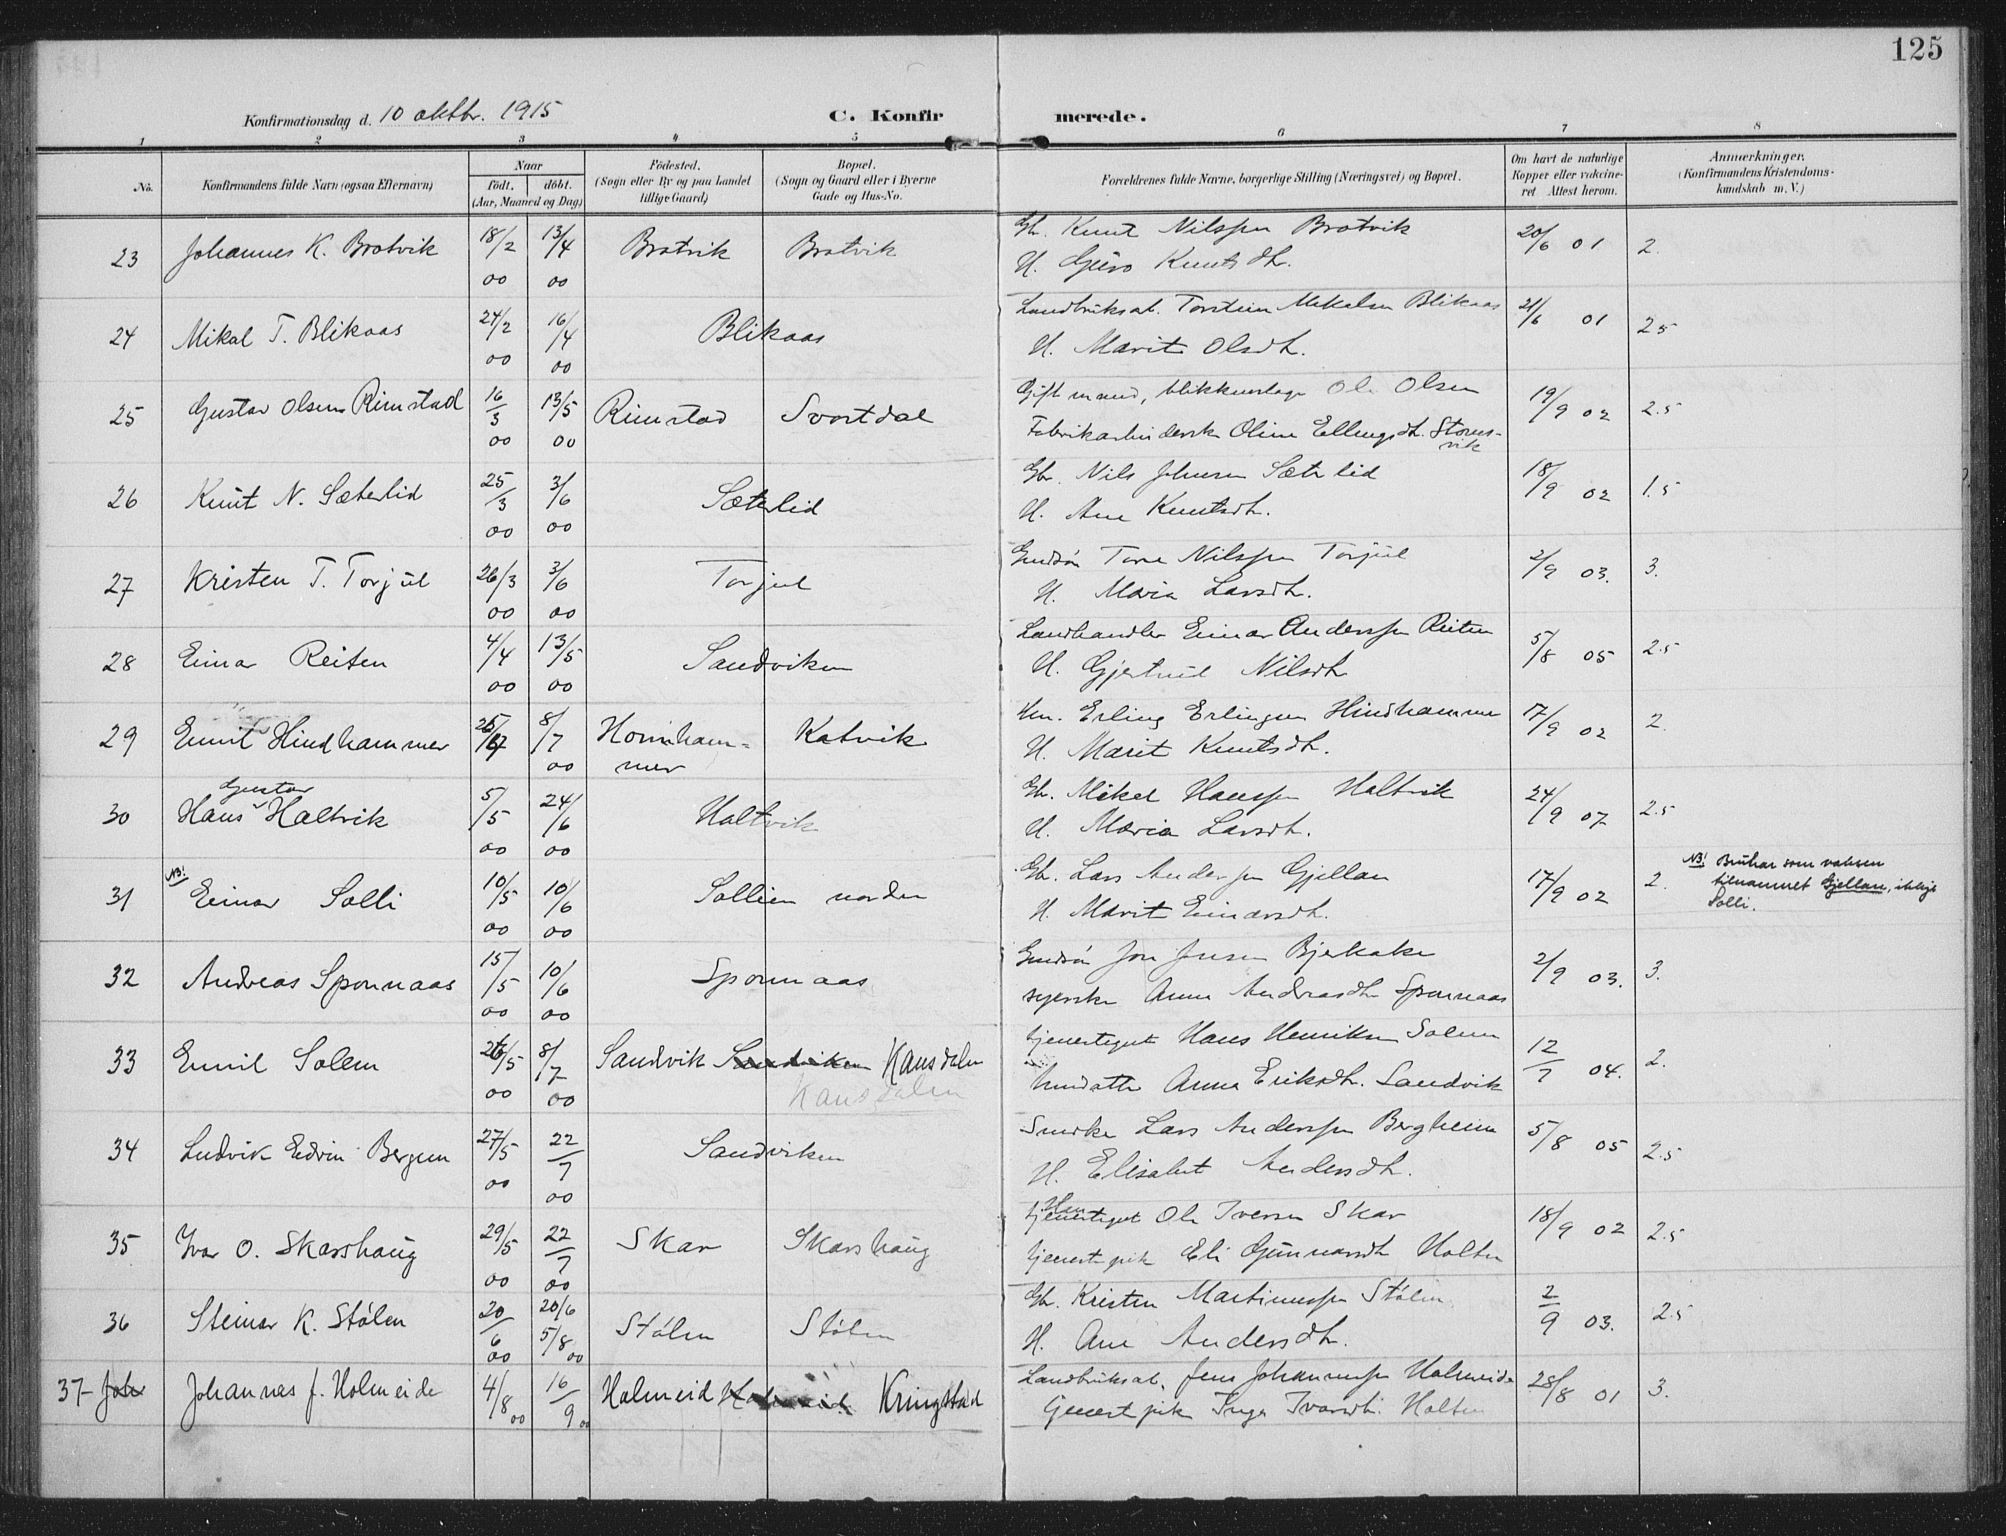 125
Konfirmationsdag d. 10 oktbr. 1915 C. Konfirmerede.
1 2 3 4 5 6 7 8
No. Konfirmandens fulde Navn (ogsaa Efternavn) Naar født. døbt. (Aar, Maaned og Dag) Fødested. (Sogn eller By og paa Landet tillige Gaard) Bopæl. (Sogn og Gaard eller i Byerne Gade og Hus-No. Forældrenes fulde Navne, borgerlige Stilling (Næringsvei) og Bopæl. Om havt de naturlige Kopper eller vaccineret Attest herom. Anmærkninger. (Konfirmandens Kristendomskundskab m. V.)
23 Johannes K. Brotvik 18/2 00 13/4 00 Brotvik Brotvik Gb. Knut Nilssen Brotvik 20/6 01 2.
H. Guro Knutsdt.
24 Mikal T. Blikaas 24/2 00 16/4 00 Blikaas Landbruksarb. Torstein Mekalsen Blikaas 21/6 01 2.5
H. Marit Olsdt.
25 Gustav Olsen Rimstad 16/3 00 13/5 00 Rimstad Svortdal Gift mand, blikkenslager Ole Olsen 19/9 02 2.5
Fabrikarbeiderske Oline Ellingsdt. Storesvik
26 Knut N. Sæterlid 25/3 00 3/6 00 Sæterlid Gb. Nils Johnsen Sæterlid 18/9 02 1.5
H. Ane Knutsdt.
27 Kristen T. Torjul 26/3 00 3/6 00 Torjul Grdsøn Tore Nilssen Torjul 2/9 03. 3.
H. Maria Larsdt.
28 Einar Reiten 4/4 00 13/5 00 Sandviken Landhandler Einar Anderssen Reiten 5/8 05 2.5
H. Gjertrud Nilsdt
29 Emil Hindhammer 8/7 00 Hornhammer Katvik Hm. Erling Erlingsen Hindhammer 17/9 02 2
H. Marit Knutsdt.
30 Hans Gustav Haltvik 5/5 00 24/6 00 Haltvik Gb. Mikal Hanssen Haltvik 24/9 07 2.5
H. Maria Larsdt.
31 NB! Einar Solli 10/5 00 10/6 00 Sollien norden Gb. Lars Anderssen Gjellan 17/9 02 2. NB! Brukar som vaksen
H. Marit Einarsdt. tilnamnet Gjellan, ikkje
Solli.
32 Andreas Spornaas 15/5 00 10/6 00 Spornaas Grdsøn Jon Jonsen Bjerkaker 2/9 03. 3.
syerske Anne Andreasdt Spornaas
33 Emil Solem 26/5 00 8/7 00 Sandvik Sandviken Hansdalen tjenestegut Hans Henriksen Solem 12/7 04. 2.
Hansdalen Anna Eriksdt. Sandvik
34 Ludvik Edvin Bergem 27/5 00 22/7 00 Sandviken Smske Lars Anderssen Bergheim 5/8 05 2.5
H. Elisabet Andersdt.
35 Ivar O. Skarshaug 29/5 00 22/7 00 Skar Skarshaug Hm tjenestegut Ole Iversen Skar 18/9 02 2.5
tjenestpik Eli Gunnarsdt Holten
36 Steinar K. Stølen 20/6 00 20/6 5/8 00 Stølen Stølen Gb. Kristen Martinussen Stølen 2/9 03. 2.5
H. Ane Andersdt.
37 Joh Johannes J. Holmeide 4/8 00 16/9 00 Holmeid Holmeid Kringstad Landbruksarb. Jens Johannessen Holmeide 28/8 01 3.
Tjenestpik Inga Ivarsdt. Holten